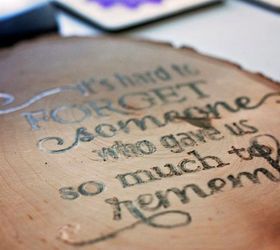 it's hard to
FORGET
someone
who gave us
so much to
remem